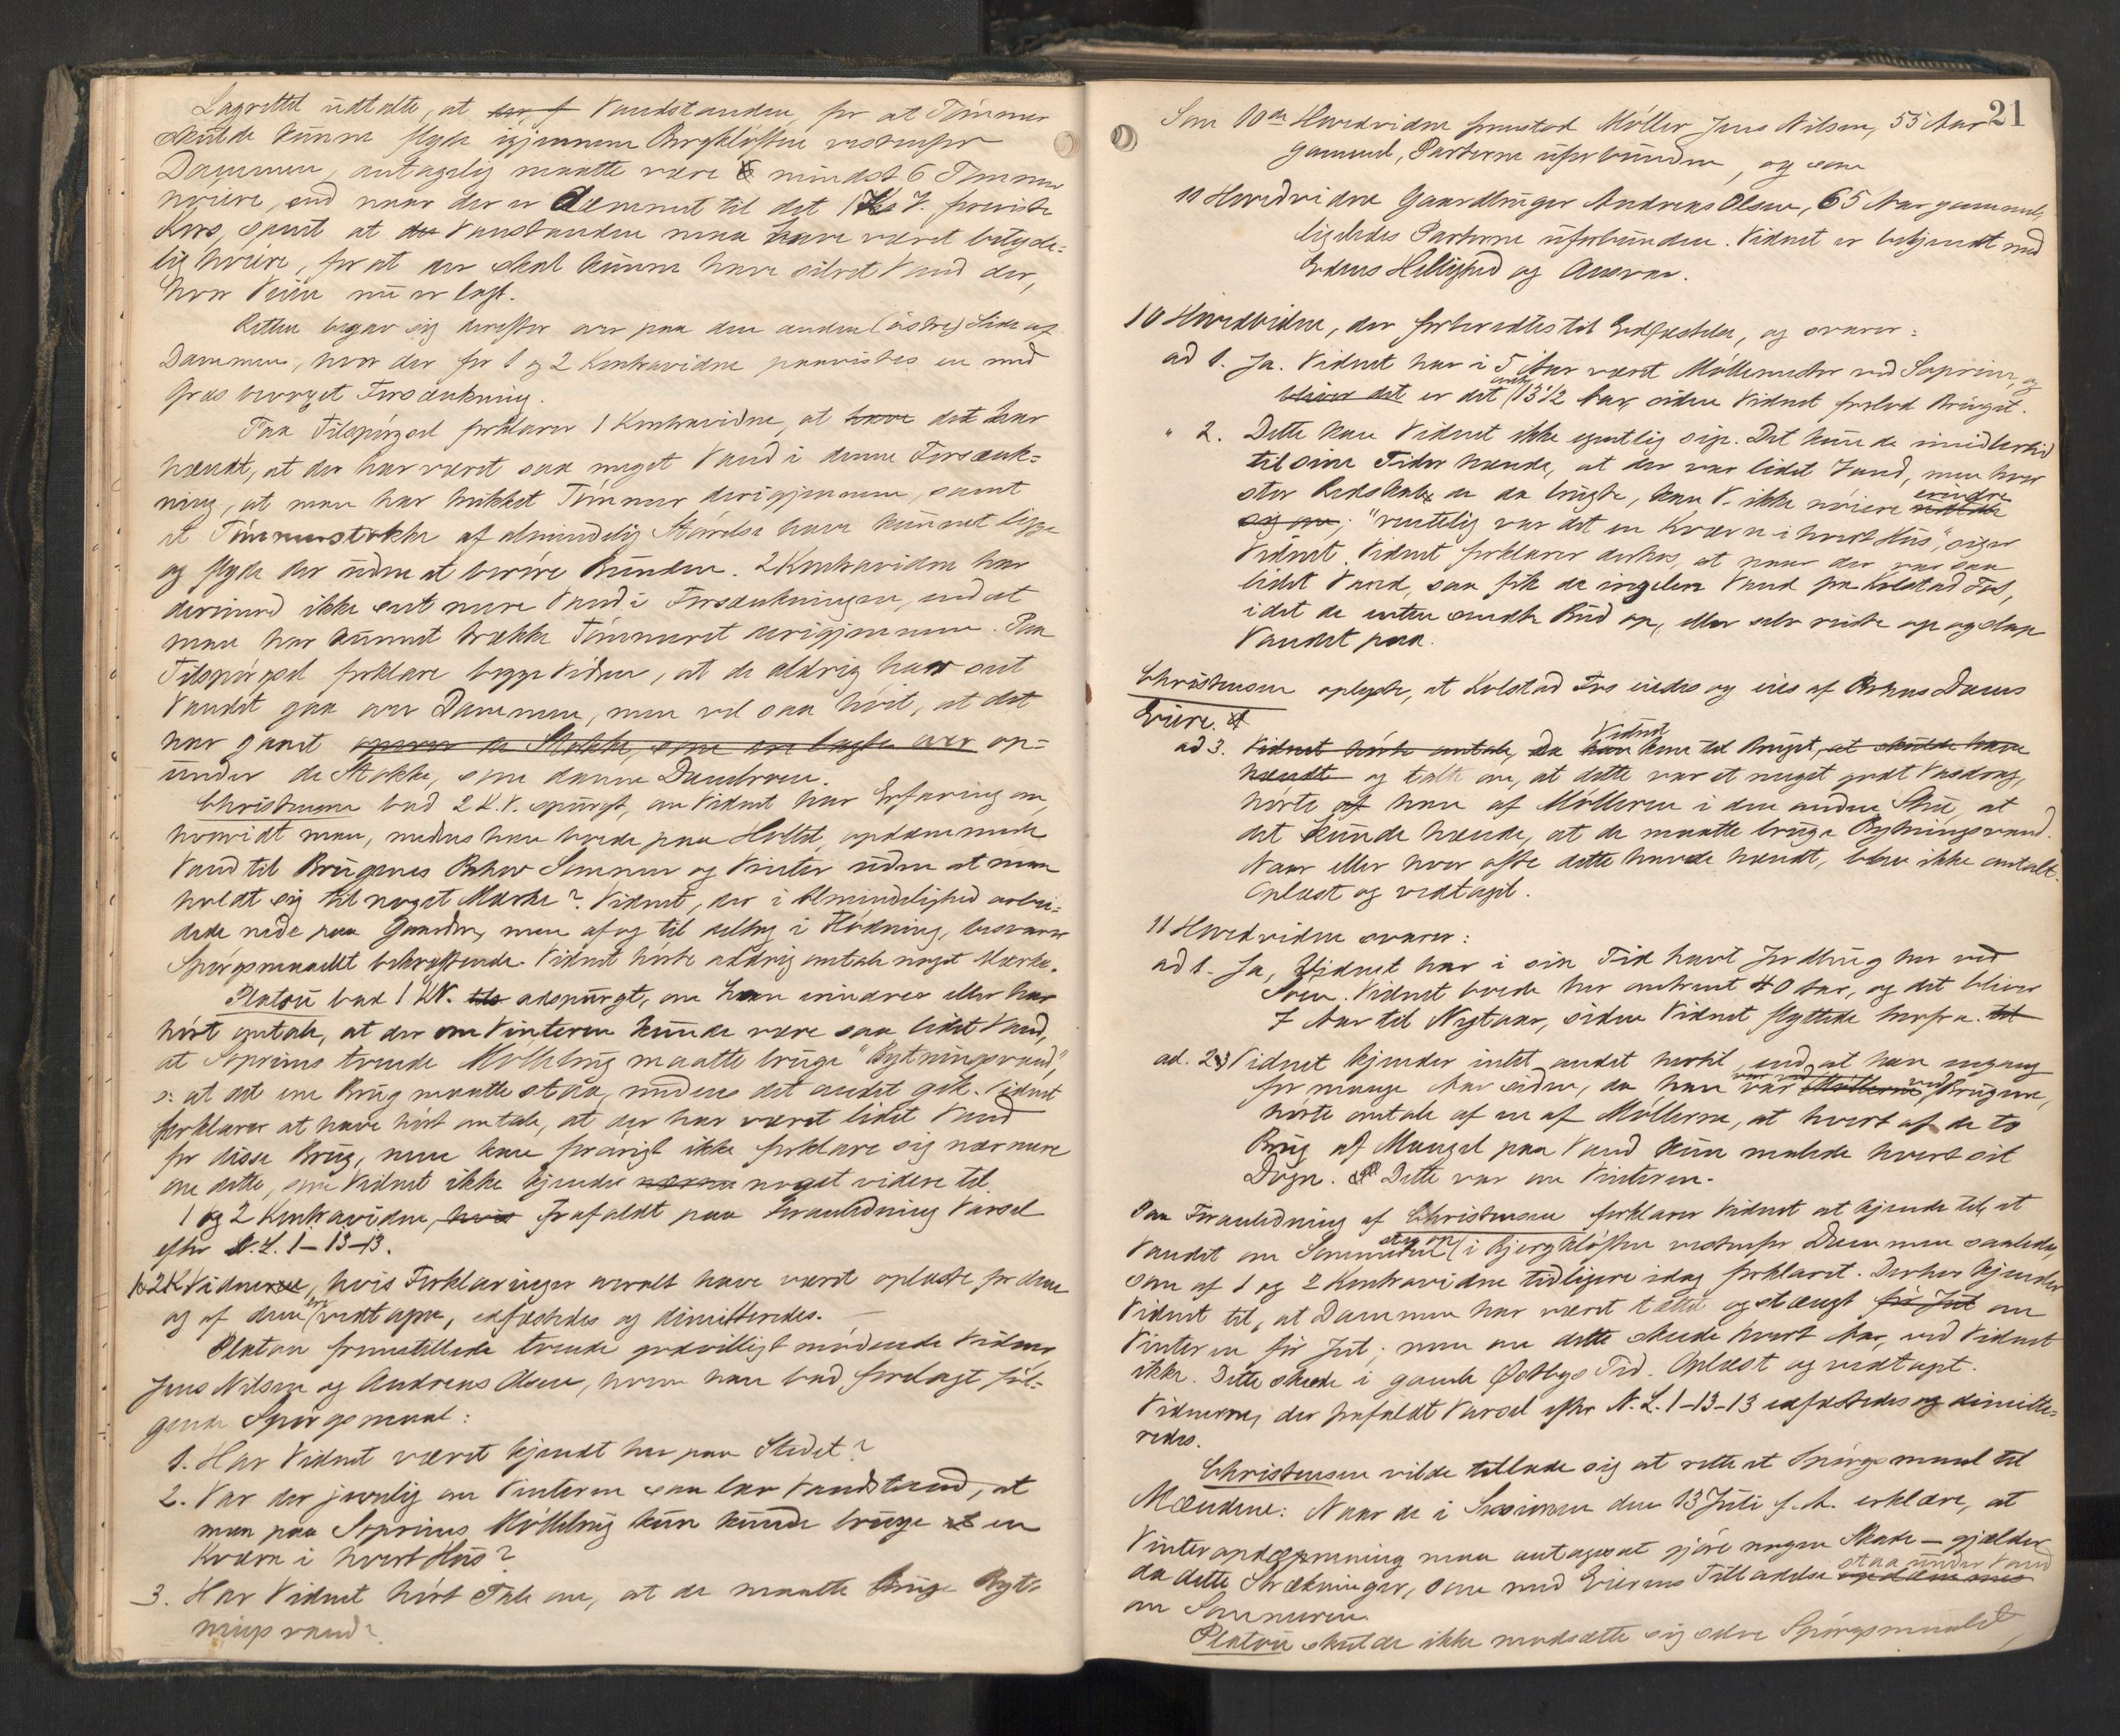 Lagrettet udtalte, at Vandstanden, for at Tømmer
skulde kunne flyde igjennem Bergkløften vestenfor
Dammen, antagelig maatte være mindst 6 Tommer
høiere, end naar der er dæmmet til det 1 K. V. foreviste
Kors, samt at Vandstanden maa have været betyde-
lig høiere, for at der skal kunne have silret Vand der,
hvor Veien nu er lagt.
Retten begav sig derefter over paa den anden (østre) Side af
Dammen, hvor der for 1 og 2 Kontravidne paavistes en med
Græs bevoxet Forsænkning.
Paa Tilspørgsel forklarer 1 Kontravidne, at have det har
hændt, at der har været saa meget Vand i denne Forsænk-
ning, at man har trukket Tømmer derigjennem, samt
at Tømmerstokke af almindelig Størrelse have kunnet ligge
og flyde der uden at berøre Bunden. 2 Kontravidne har
derimod ikke seet mere Vand i Forsænkningen, end at
man har kunnet trække Tømmeret derigjennem. Paa
Tilspørgsel forklare begge Vidner, at de aldrig have seet
Vandet gaa over Dammen, men vel saa høit, at det
har gaaet opover de Stokke, som ere lagte over op-
under de Stokke, som danne Dambroen.
Christensen bad 2 K.V. spurgt, om Vidnet har Erfaring om,
hvorvidt man, medens han boede paa Holtet, opdæmmede
Vand til Brugenes Behov Sommer og Vinter uden at man
holdt sig til noget Mærke? Vidnet, der i Almindelighed arbei-
dede nede paa Gaarden, men af og til deltog i Flødning, besvarer
Spørgsmaalet bekræftende. Vidnet hørte aldrig omtale noget Mærke.
Platou bad 1 KV. adspurgt, om han erindrer eller har
hørt omtale, at der om Vinteren kunde være saa lidet Vand,
at Soprims tvende Møllebrug maatte bruge "Bytningsvand,"
o: at det ene Brug maatte staa, medens det andet gik. Vidnet
forklarer at have hørt omtale, at der har været lidet Vand
for disse Brug, men kan forøvrigt ikke forklare sig nærmere
om dette, som Vidnet ikke kjender noget videre til.
1 og 2 Kontravidne, hvis frafaldt paa Foranledning Varsel
efter N. L. 1-13-13.
1 & 2 K Vidnerne, hvis Forklaringer overalt have været oplæste for dem
og af dem ere vedtagne, edfæstedes og dimitteredes.
Platou fremstillede tvende godvilligt mødende Vidner
Jens Nilsen og Andreas Olsen, hvem han bad forelagt føl-
gende Spørgsmaal:
1. Har Vidnet været kjendt her paa Stedet?
2. Var der jevnlig om Vinteren saa lav Vandstand, at
man paa Soprims Møllebrug kun kunde bruge en
Kværn i hvert Hus?
3. Har Vidnet hørt Tale om, at de maatte bruge Byt-
ningsvand?
21
Som 10de Hovedvidne fremstod Møller Jens Nilsen, 55 Aar
gammel, Parterne uforbunden, og som
11 Hovedvidne Gaardbruger Andreas Olsen, 65 Aar gammel,
ligeledes Parterne uforbunden. Vidnet er bekjendt med
Edens Hellighed og Ansvar.
10 Hovedvidne, der forberedtes til Edfæstelse, og svarer:
ad 1. Ja. Vidnet har i 5 Aar været Møllemester ved Soprim, og
bliver det er det omtr 13 1/2 Aar, siden Vidnet forlod Bruget.
" 2. Dette kan Vidnet ikke egentlig sige. Det kunde imidlertid
til sine Tider hænde, at der var lidet Vand, men hvor
stor Redskab de da brugte, kan V. ikke nøiere erindre
sig om; "rentelig var det en Kværn i hvert Hus", siger
Vidnet. Vidnet forklarer derhos, at naar der var saa
lidet Vand, saa fik de ingelen Vand fra Kolstad Fos,
idet de enten sendte Bud op, eller selv reiste op og slap
Vandet paa.
Christensen oplyste, at Kolstad Fos eiedes og eies af Bøhns Dams
Eiere.
ad 3. Vidnet hørte omtale, Da Vidnet kom til Bruget, at skulde have
hændt og talte om, at dette var et meget godt Vasdrag,
hørte han af Mølleren i den anden Stue, at
det kunde hænde, at de maatte bruge Bytningsvand.
Naar eller hvor ofte dette havde hændt, blev ikke omtalt.
Oplæst og vedtaget.
11 Hovedvidne svarer:
ad 1. Ja, Vidnet har i sin Tid havt Jordbrug her ved
Søen. Vidnet boede her omtrent 40 Aar, og det bliver
7 Aar til Nytaar, siden Vidnet flyttede herfra.
ad. 2&3 Vidnet kjender intet andet hertil, end at han engang
for mange Aar siden, da han var ved Brugene,
hørte omtale af en af Møllerne, at hvert af de to
Brug af Mangel paa Vand kun malede hvert sit
Døgn. Dette var om Vinteren.
Paa Foranledning af Christensen forklarer Vidnet at kjende til, at
Vandet om Sommeren steg op i Bjergkløften vestenfor Dammen saaledes
som af 1 og 2 Kontravidne tidligere idag forklaret. Derhos kjender
Vidnet til, at Dammen har været tættet og stængt før Jul om
Vinteren før Jul; men om dette skede hvert Aar, ved Vidnet
ikke. Dette skede i gamle Østbys Tid. Oplæst og vedtaget.
Vidnerne, der frafaldt Varsel efter N. L. 1-13-13 edfæstedes og dimitte-
redes.
Christensen vilde tillade sig at rette et Spørgsmaal til
Mændene: Naar de i Sessionen den 13 Juli f. A. erklære, at
Vinteropdæmning maa antages at gjøre nogen Skade – gjælder
da dette Strækninger, som med Eierens Tilladelse staa under Vand
om Sommeren.
Platou skulde ikke modsætte sig selve Spørgsmaalet,